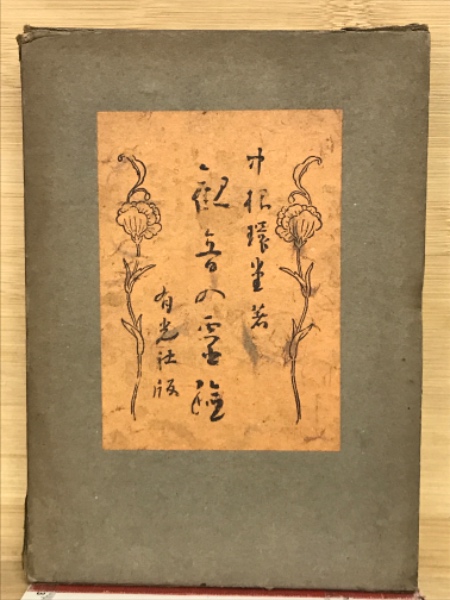 中根環堂著
観音の霊験
有光社版